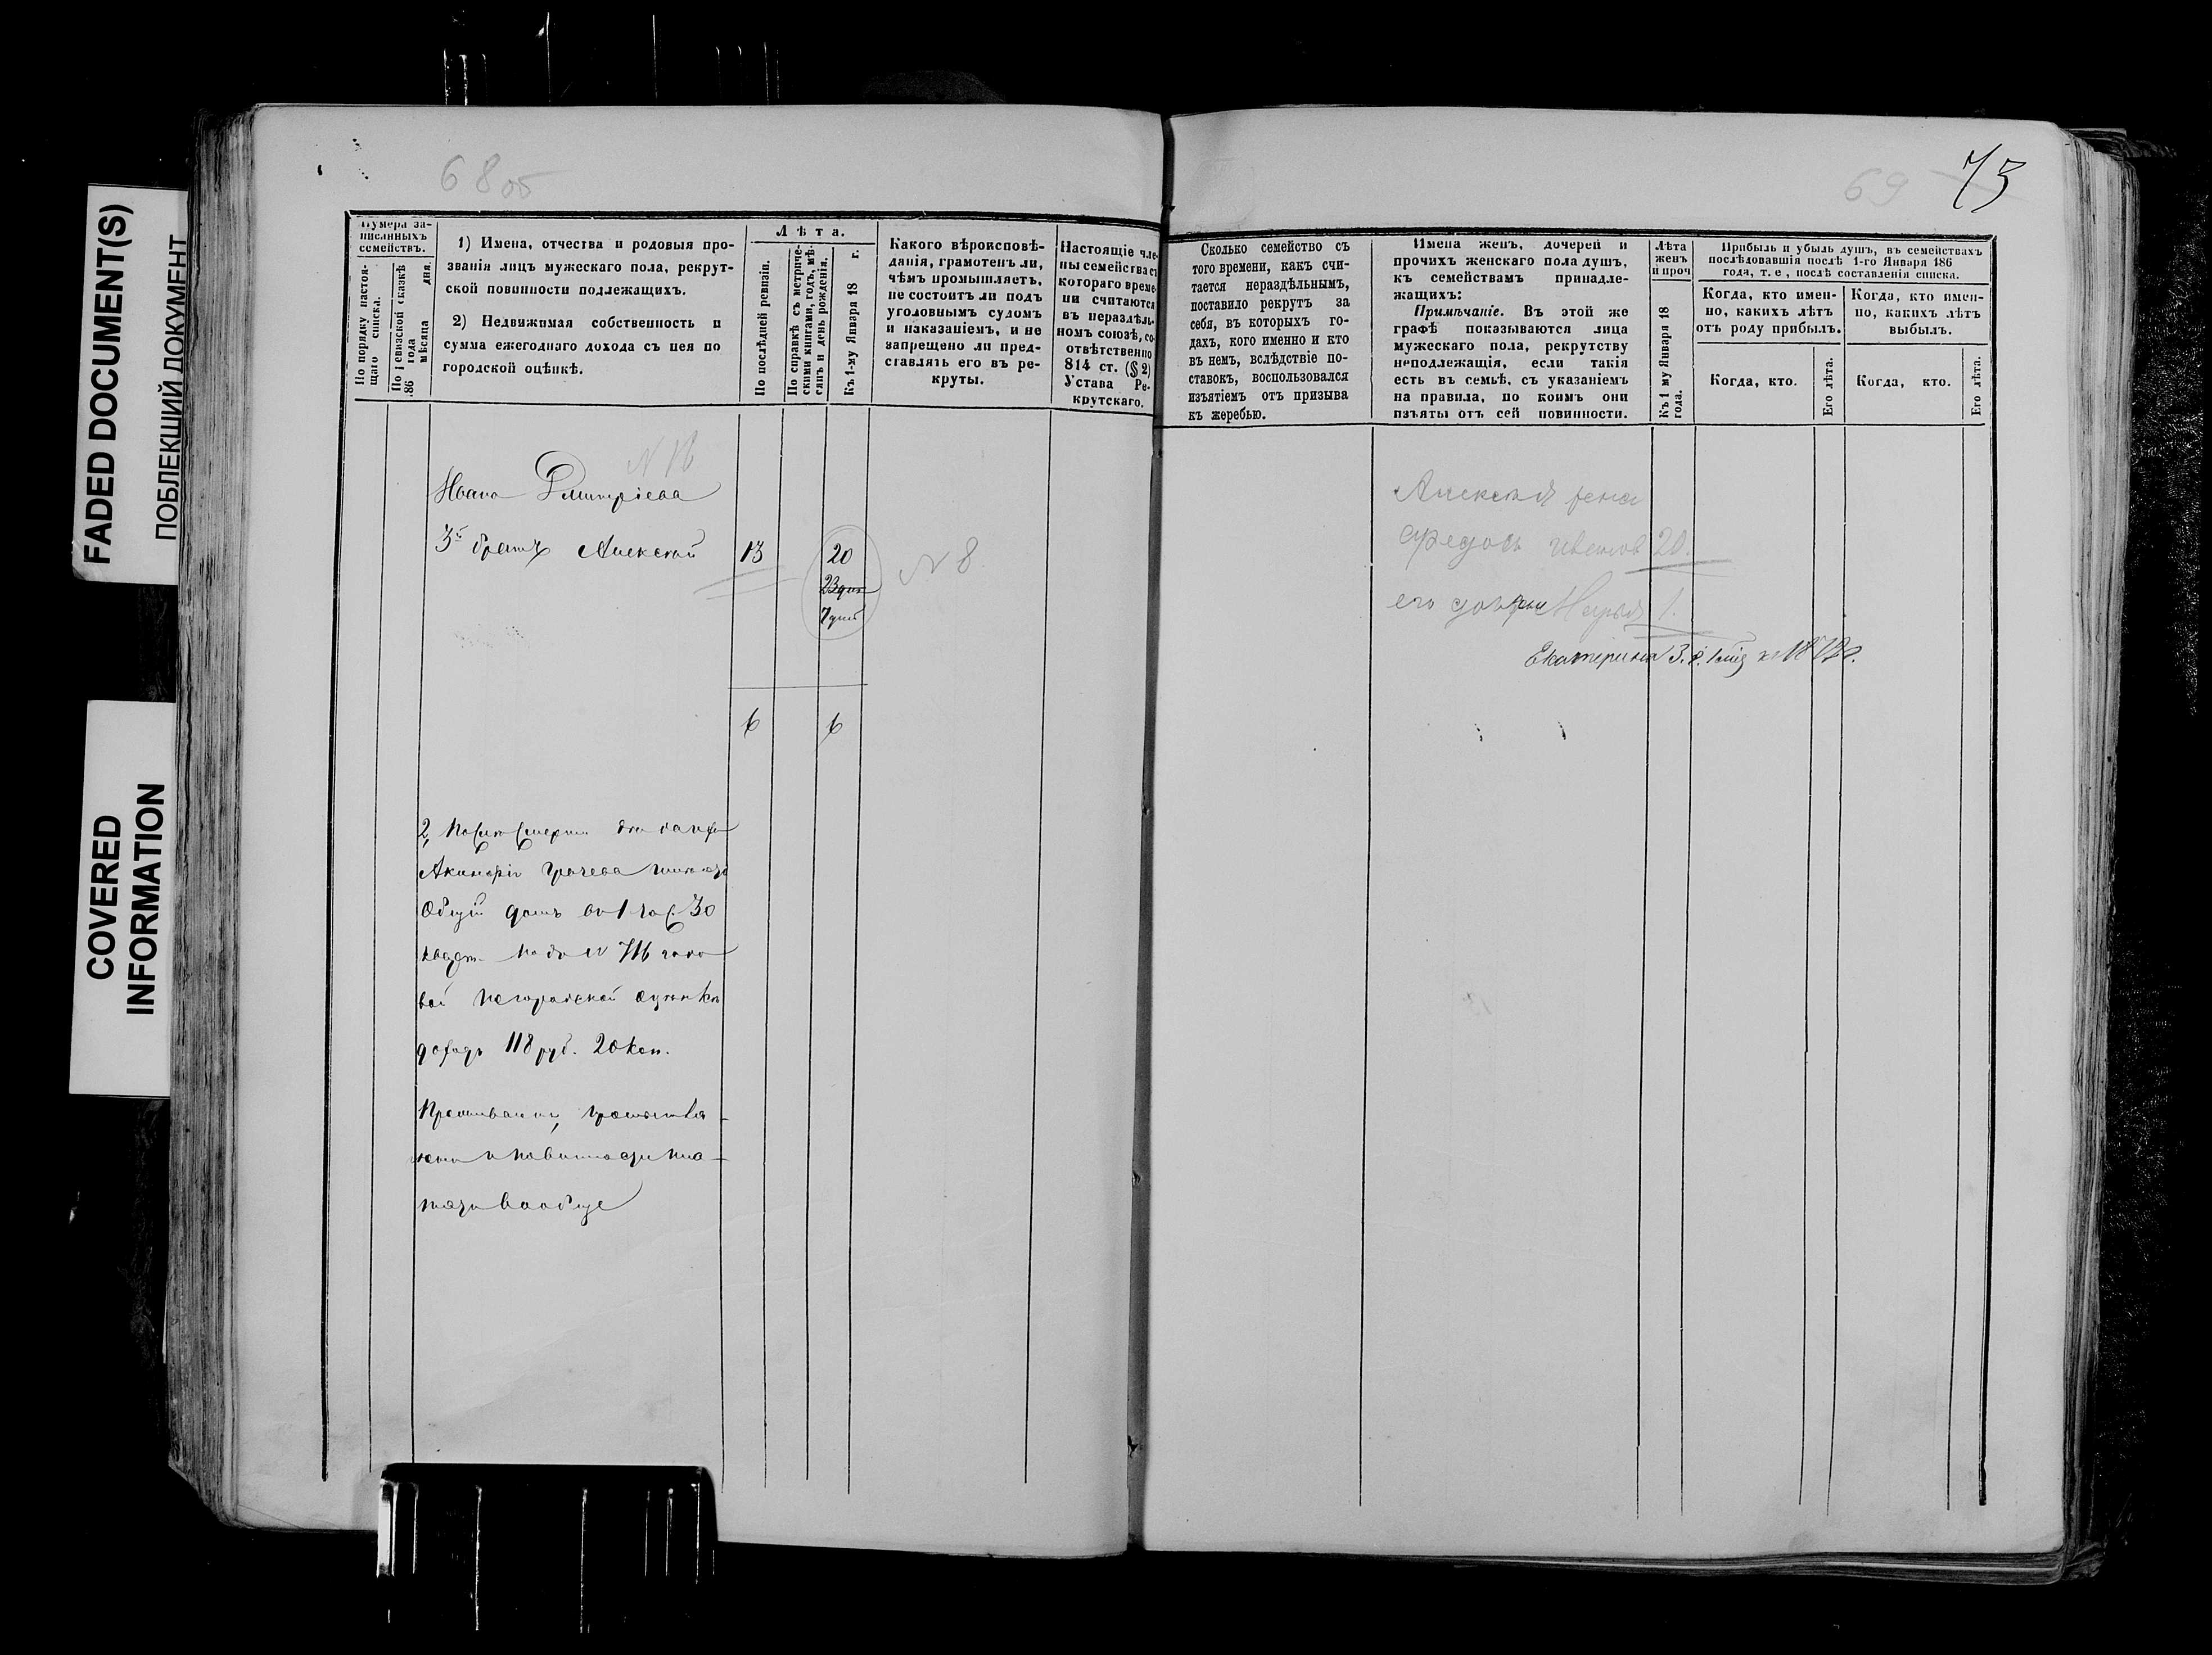 FADED DOCUMENT(S)
ПОБЛЕКШИЙ ДОКУМЕНТ
COVERED
INFORMATION
68об
Нумера за-
писанныхъ
семействъ.
По порядку настоя-
щаго списка.
По ревизской сказкѣ
186 года дня.
мѣсяца
1) Имена, отчества и родовыя про-
званія лицъ мужескаго пола, рекрут-
ской повинности подлежащихъ.
2) Недвижимая собственность и
сумма ежегоднаго дохода съ нея по
городской оцѣнкѣ.
Лѣта.
По послѣдней ревизіи.
По справкѣ съ метриче-
скими книгами, годъ, мѣ-
сяцъ и день рожденія.
Къ 1-му Января 18 г.
Какого вѣроисповѣ-
данія, грамотенъ ли,
чѣмъ промышляетъ,
не состоитъ ли подъ
уголовнымъ судомъ
и наказаніемъ, и не
запрещено ли пред-
ставлять его въ ре-
круты.
Настоящіе чле-
ны семейства съ
котораго време-
ни считаются
въ нераздѣль-
номъ союзѣ, со-
отвѣтственно
814 ст. (§ 2)
Устава Ре-
крутскаго.
N 16
Ивана Дмитріева
3й братъ Алексѣй 13 20
23 дня
7 дней
N 8
6 6
2,
Общій домъ во 1 час. 30
N 716
вой по городской оцѣнкѣ
доходъ 118 руб. 20 коп.
вообще
69 75
Сколько семейство съ
того времени, какъ счи-
тается нераздѣльнымъ,
поставило рекрутъ за
себя, въ которыхъ го-
дахъ, кого именно и кто
въ немъ, вслѣдствіе по-
ставокъ, воспользовался
изъятіемъ отъ призыва
къ жеребью.
Имена женъ, дочерей и
прочихъ женскаго пола душъ,
къ семействамъ принадле-
жащихъ:
Примѣчаніе. Въ этой же
графѣ показываются лица
мужескаго пола, рекрутству
неподлежащія, если такія
есть въ семьѣ, съ указаніемъ
на правила, по коимъ они
изъяты отъ сей повинности.
Лѣта
женъ
и проч
Къ 1 му Января 18
года.
Прибыль и убыль душъ, въ семействахъ
послѣдовавшія послѣ 1-го Января 186
года, т. е., послѣ составленія списка.
Когда, кто имен-
но, какихъ лѣтъ
отъ роду прибылъ.
Когда, кто имен-
но, какихъ лѣтъ
выбылъ.
Когда, кто.
Его лѣта.
Когда, кто.
Его лѣта.
Алексѣя жена
20.
его дочери Марья 1.
Екатерина 3.